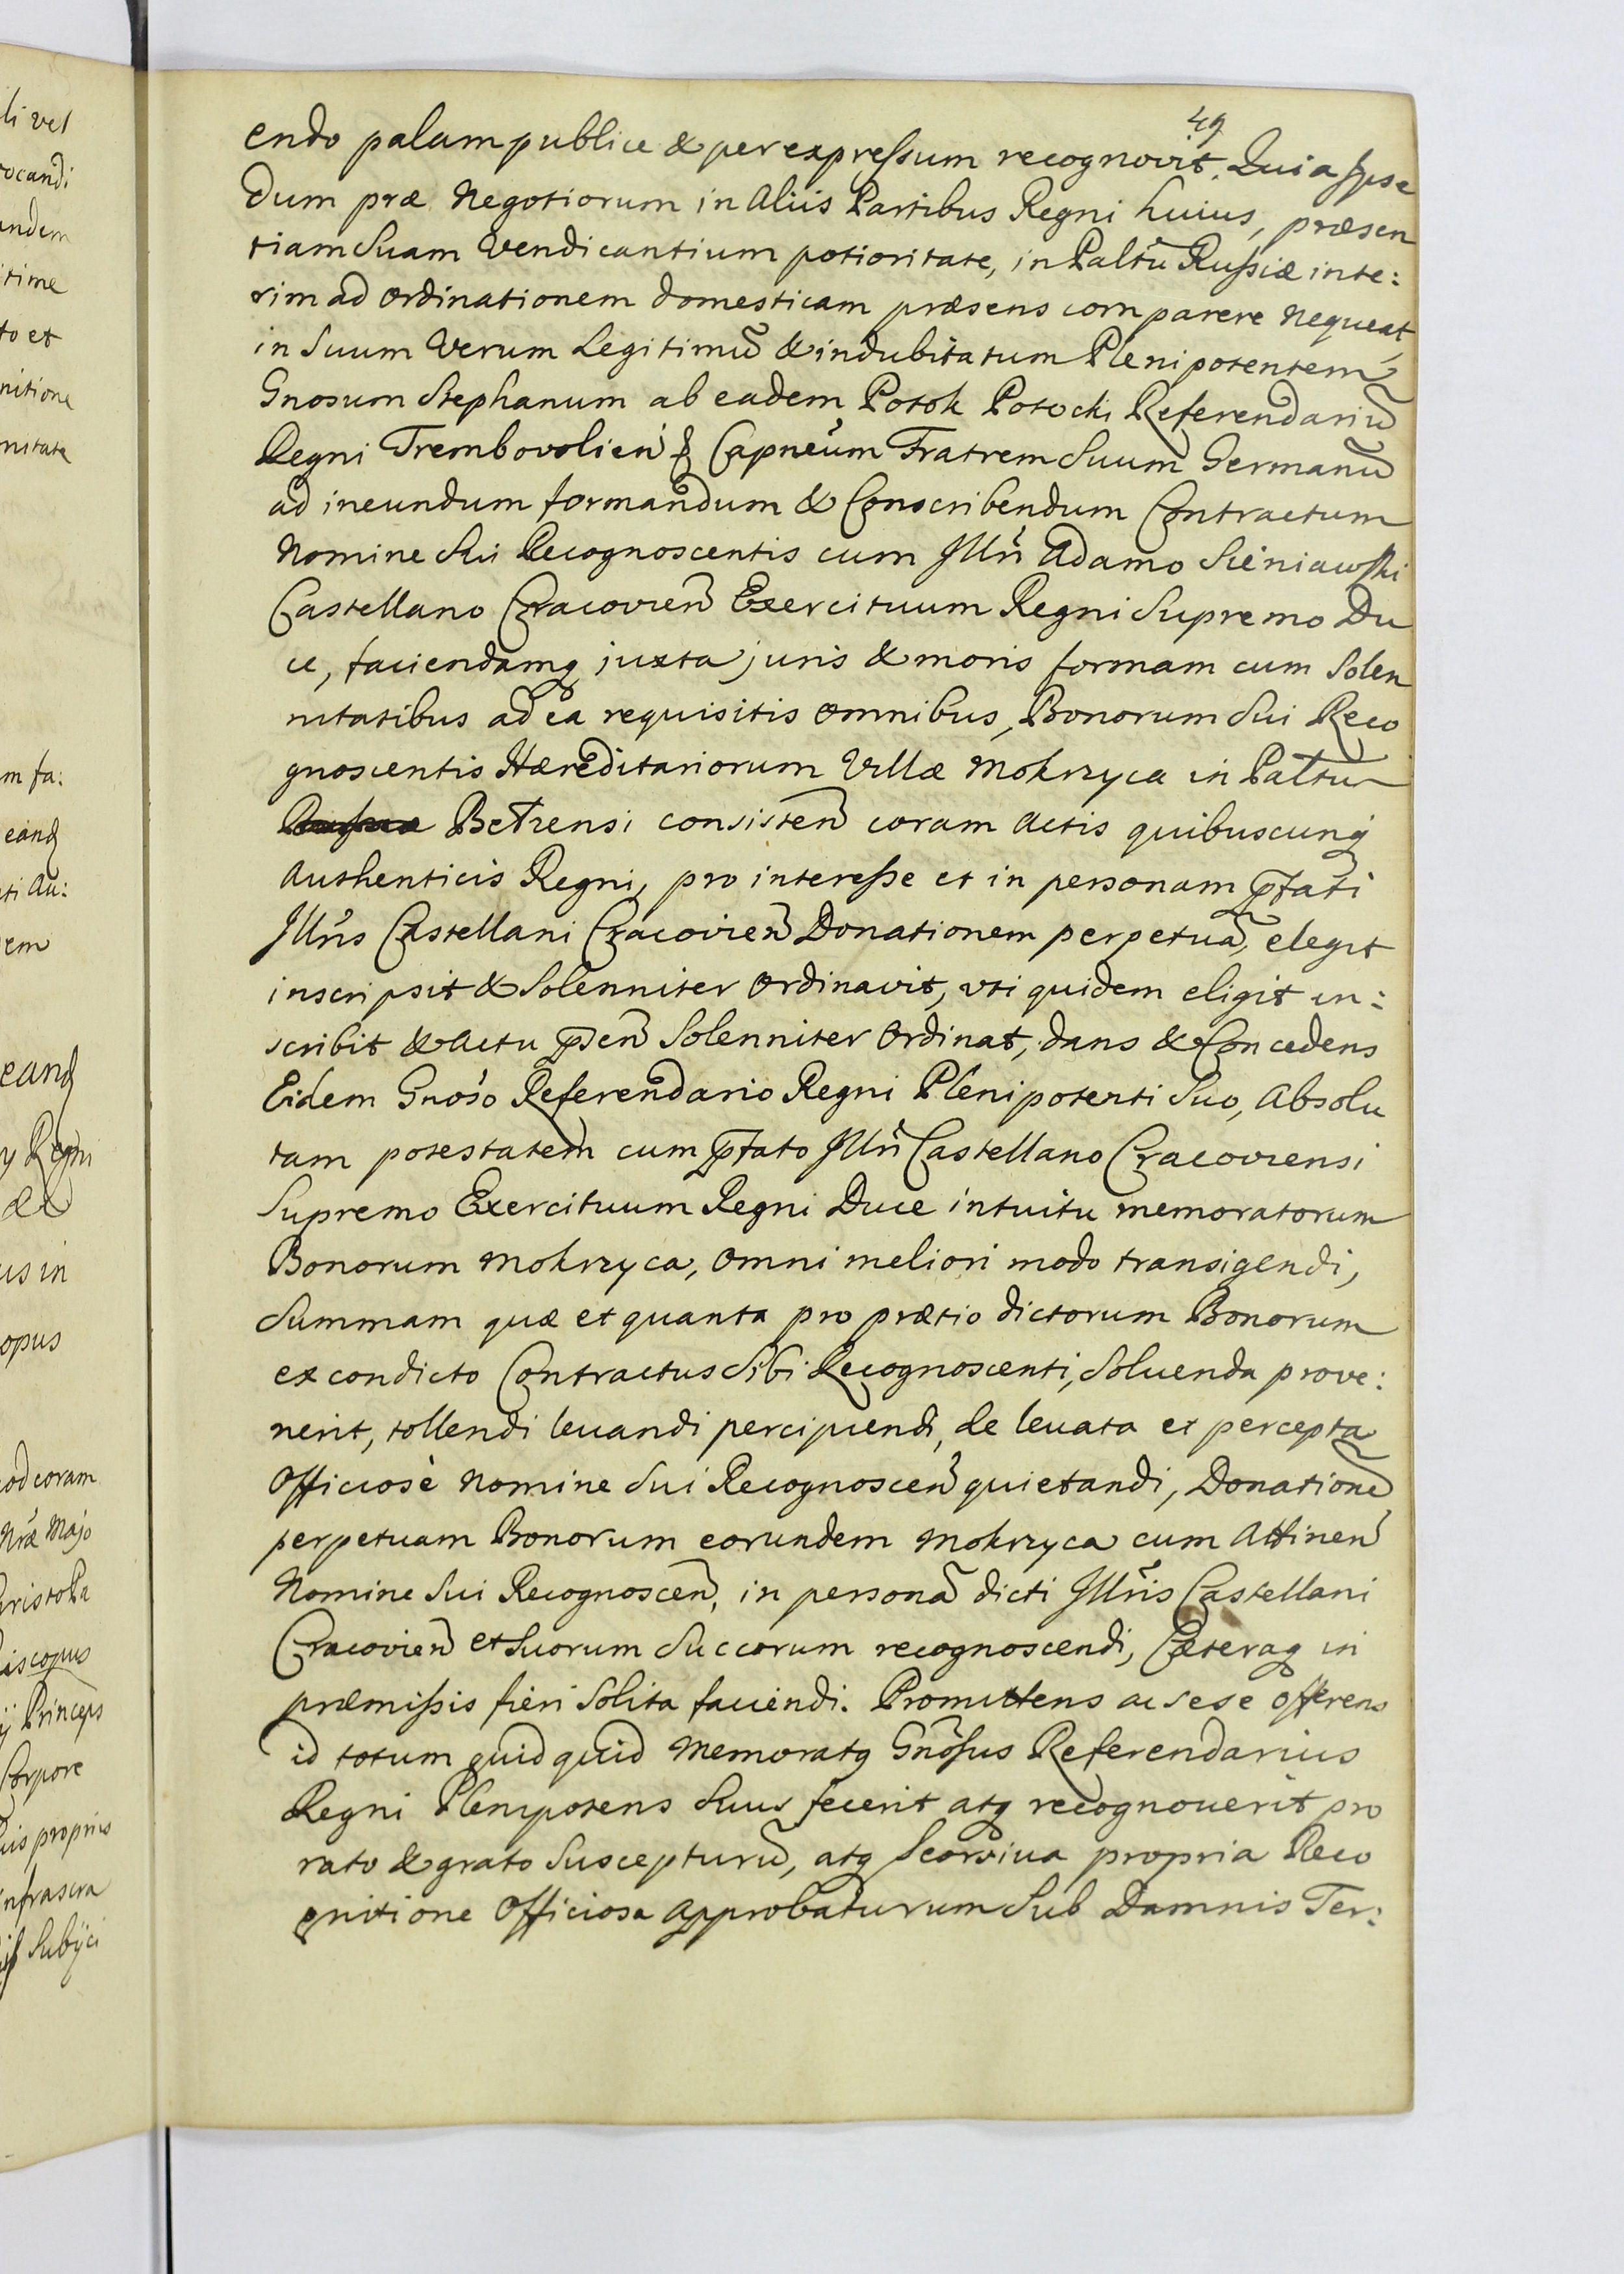 49
endo palam publice & per expressum recognovit. Quia Ipse
dum præ Negotiorum in Aliis Partibus Regni huius, præsen
tiam Suam Vendicantium potioritate, in Paltũ Russiæ inte:
rim ad Ordinationem domesticam præsens comparere Nequeat,
in Suum Verum Legitimũ & indubitatum Plenipotentem
Gnosum Stephanum ab eadem Potok Potocki Referendariũ
Regni Trembovolien̄ & Capneum Fratrem Suum Germanũ
ad ineundum formandum & Conscribendum Contractum
Nomine Sui Recognoscentis cum Illn̄ Adamo Sieniawski
Castellano Cracovien̄ Exercituum Regni Supremo Du
ce, faciendamq juxta juris & moris formam cum Solen
nitatibus ad ea requisitis omnibus, Bonorum Sui Reco
gnoscentis Hæreditariorum Villæ Mokrzyca in Paltu
Russiæ Betzensi consisten̄ coram Actis quibuscunq
Authenticis Regni, pro interesse et in personam p̄fati
Illn̄s Castellani Cracovien̄ Donationem perpetuã, elegit
inscripsit & Solenniter Ordinavit, uti quidem eligit in:
scribit & Actu p̄sen̄ Solenniter Ordinat, dans & Concedens
Eidem Gnoso Referendario Regni Plenipotenti Suo, Absolu
tam potestatem cum p̄fato Illn̄ Castellano Cracoviensi
Supremo Exercituum Regni Duce intuitu memoratorum
Bonorum Mokrzyca, Omni meliori modo transigendi,
Summam quæ et quanta pro prætio dictorum Bonorum
ex condicto Contractus Sibi Recognoscenti, Soluenda prove:
nerit, tollendi leuandi percipiendi, de leuata et percepta
Officiosè Nomine Sui Recognoscen̄ quietandi, Donationẽ
perpetuam Bonorum eorundem Mokrzyca cum Attinen̄
Nomine Sui Recognoscen̄, in personã dicti Illn̄is Castellani
Cracovien̄ et Suorum Succorum recognoscendi, Cæteraq in
præmissis fieri Solita faciendi. Promittens ac sese Offerens
id totum quidquid Memoratq Gnōsus Referendarius
Regni Plenipotens Suus fecerit atq recognouerit pro
rato & grato Suscepturũ, atq Seorsiua propria Reco
gnitione Officiosa Approbaturum Sub Damnis Ter: